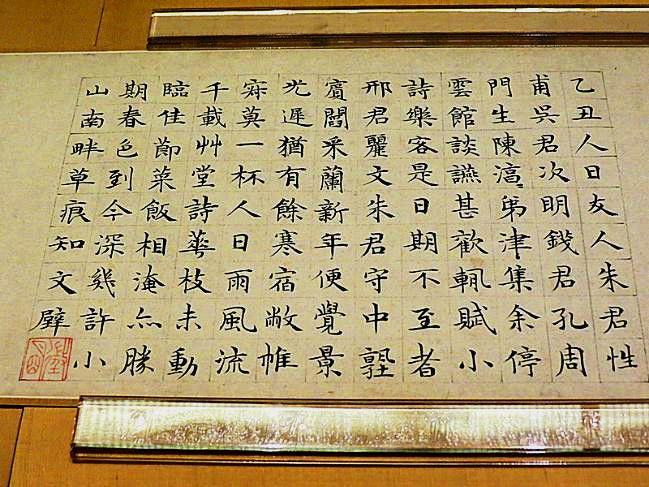 乙丑人日友人朱君性
甫吳君次明錢君孔周
門生陳淳弟津集余停
雲館談讌甚歡輒賦小
詩樂客是日期不至者
邢君麗文朱君守中塾
賓閻采蘭新年便覺景
光遲猶有餘寒宿敝帷
寂莫一杯人日雨風流
千載艸堂詩華枝未動
臨佳節菜飯相淹亦勝
期春色到今深幾許小
山南畔草痕知文璧